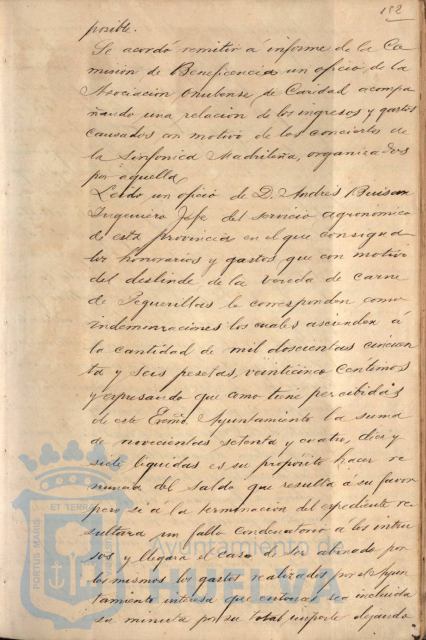 152
posible.
Se acordó remitir á informe de la Co
misión de Beneficencia un oficio de la
Asociacion Onubense de Caridad acompa
ñando una relación de los ingresos y gastos
causados con motivo de los conciertos de
la Sinfonica Madrileña, organizados
por aquella
Leido un oficio de D. Andrés
Ingeniero Jefe del servicio agronómico
de esta provincia en el que consigna
los honorarios y gastos, que con motivo
del deslinde de la vereda de carne
de Peguerillas le corresponden como
indemnizaciones los cuales ascienden á
la cantidad de mil doscientas cincuen
ta y seis pesetas, veinticinco centimos
y expresando que como tiene percibidas
de este Excmo. Ayuntamiento la suma
de novecientas setenta y cuatro, diez y
siete liquidas es su propósito hacer re
nuncia del saldo que resulta á su favor
pero si a la terminacion del expediente re
sultara un fallo condenatorio a los intru
sos y llegara el caso de ser abonado por
los mismos los gastos realizados por el Ayun
tamiento interesa que entonces sea incluida
su minuta por su total importe dejando
PORTUS MARIS ET TERRAE
Ayuntamiento de
HUELVA